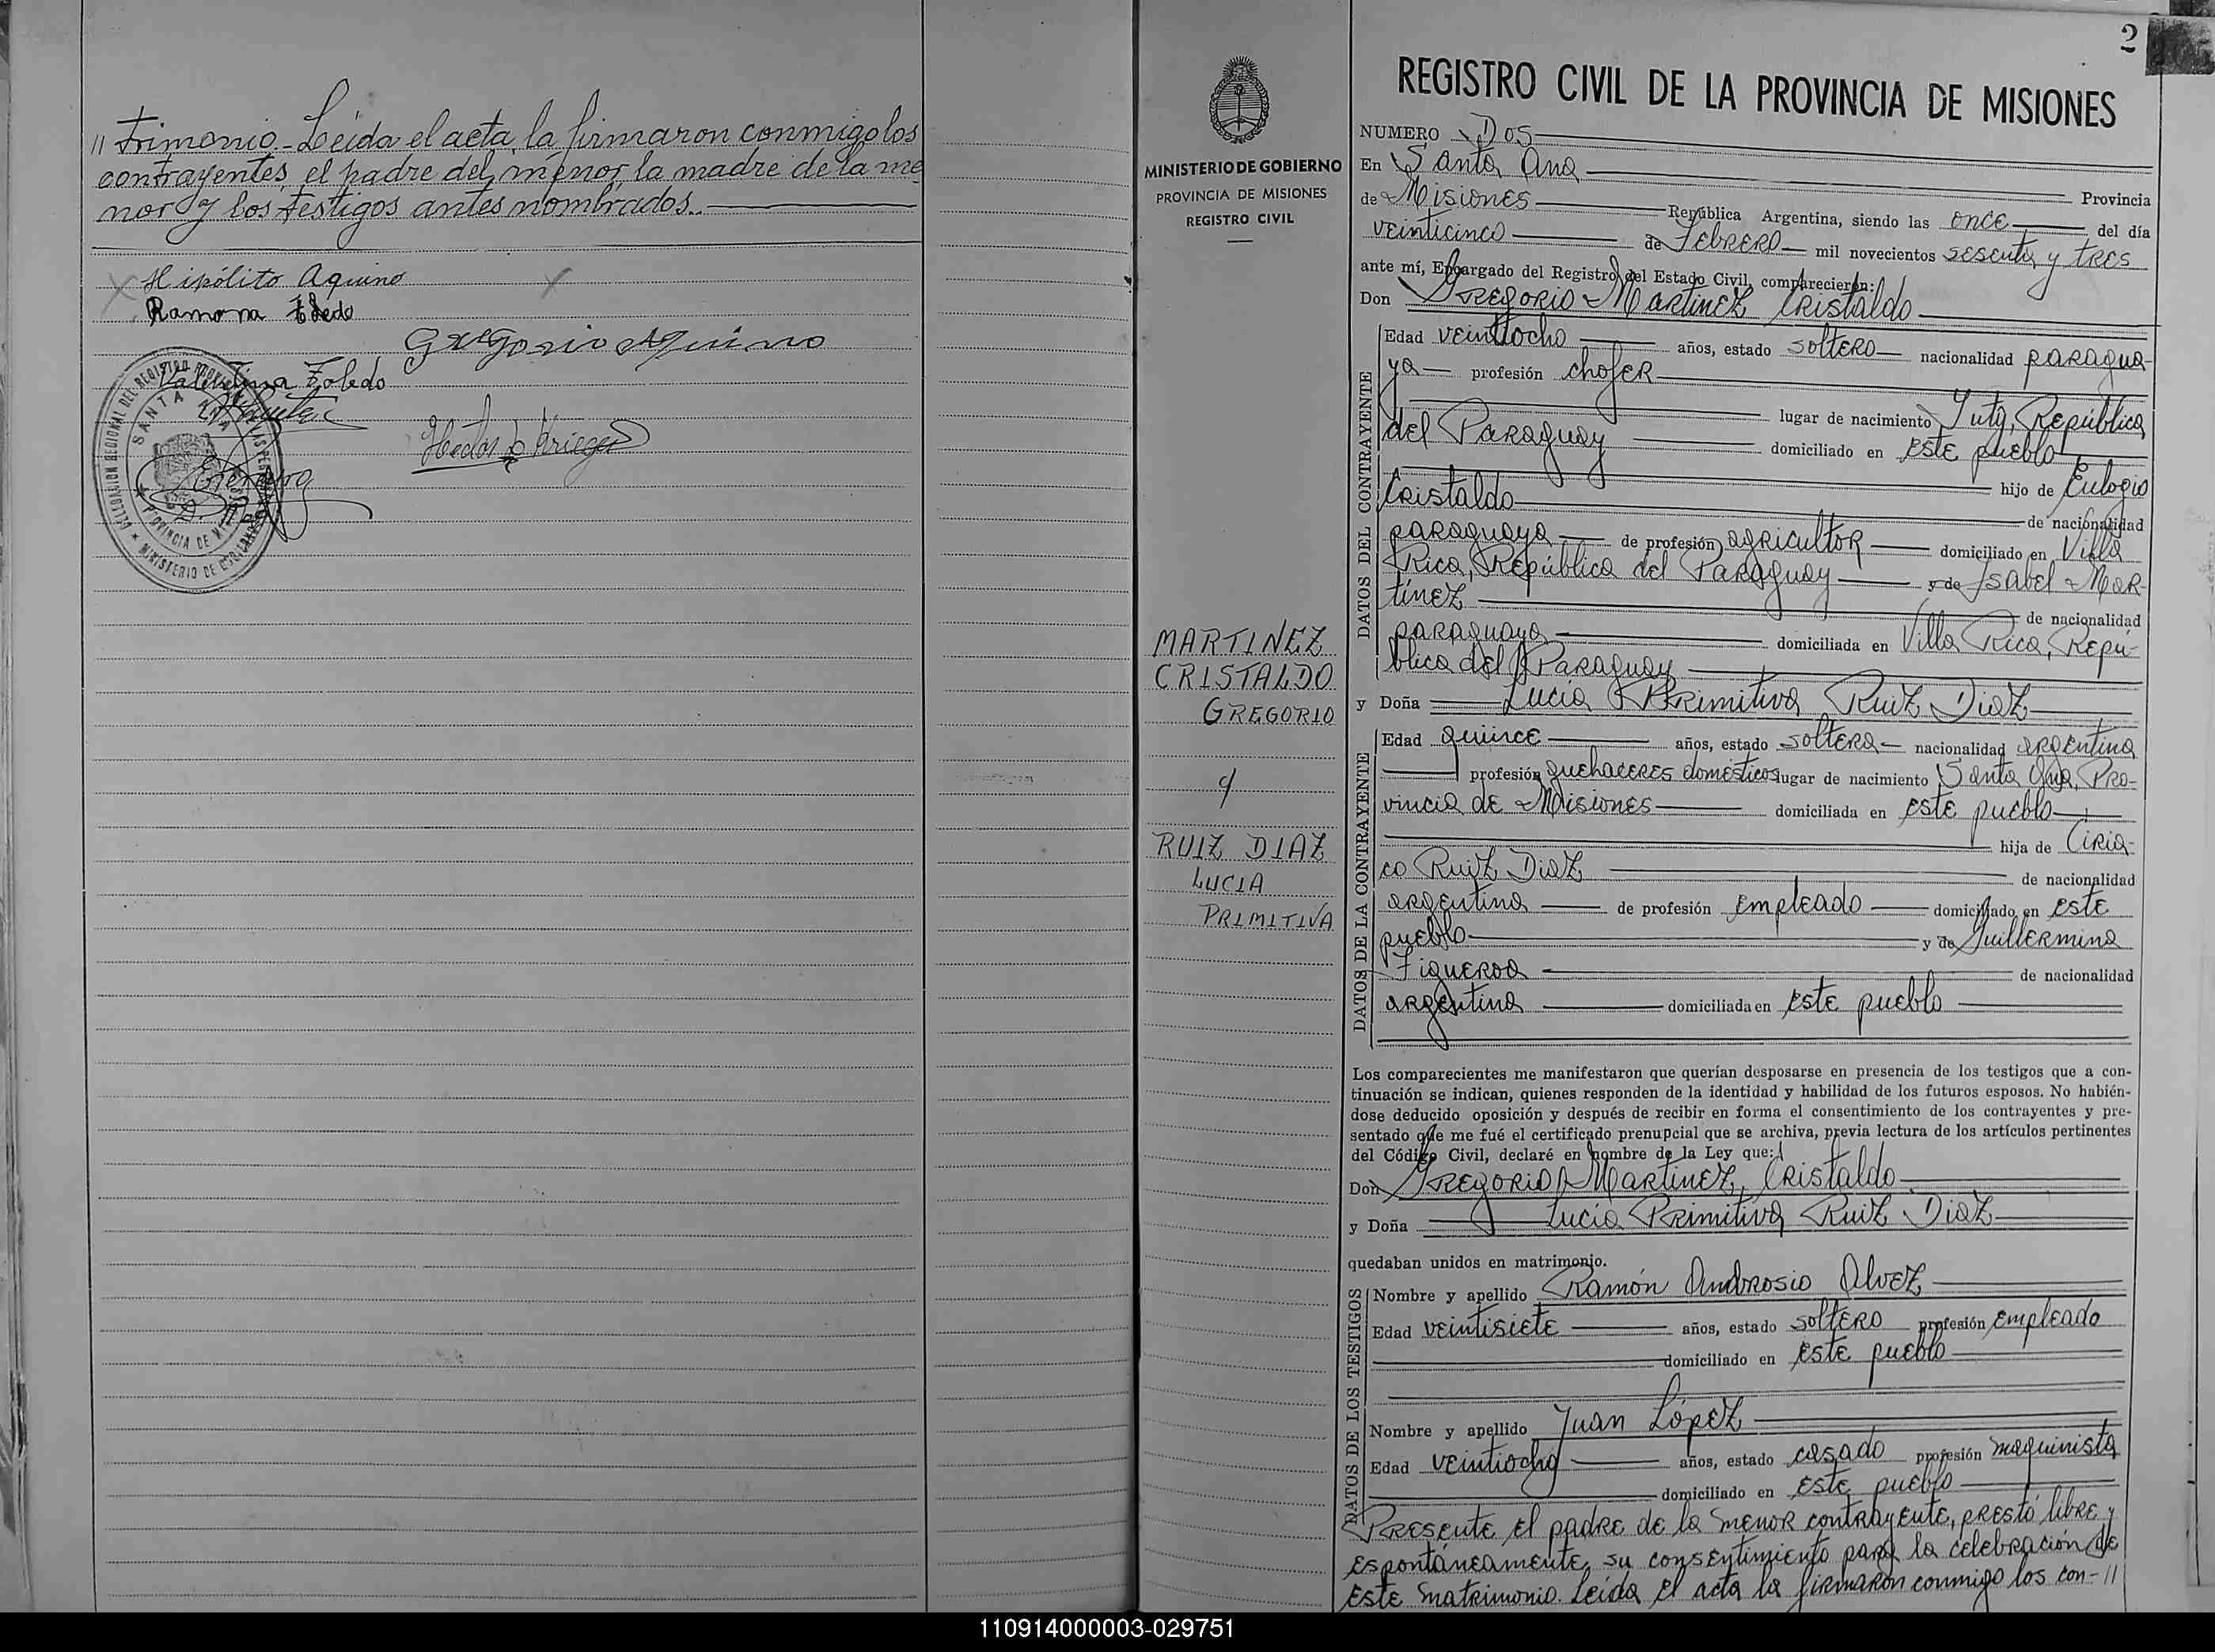 // trimonio.- Leída el acta, la firmaron conmigo los
contrayentes, el padre del menor, la madre de la me
nor y los testigos antes nombrados.-
Hipólito Aquino
Ramona Toledo
Gregorio Aquino
Valentina Toledo
Hector Krieger
DELEGACION REGIONAL DEL REGISTRO PROVINCIAL DE LAS PERSONAS
SANTA ANA
PROVINCIA DE MISIONES
MINISTERIO DE GOBIERNO
MINISTERIO DE GOBIERNO
PROVINCIA DE MISIONES
REGISTRO CIVIL
MARTINEZ
CRISTALDO
GREGORIO
y
RUIZ DIAZ
LUCIA
PRIMITIVA
2
REGISTRO CIVIL DE LA PROVINCIA DE MISIONES
NUMERO Dos
En Santa Ana
Provincia
de Misiones República Argentina, siendo las once del día
veinticinco de Febrero mil novecientos sesenta y tres
ante mí, Encargado del Registro del Estado Civil, comparecieron:
Don Gregorio Martinez Cristaldo
DATOS DEL CONTRAYENTE
Edad veintiocho años, estado soltero nacionalidad paragua-
ya profesión chofer
lugar de nacimiento Yuty, República
del Paraguay domiciliado en este pueblo
hijo de Eulogio
Cristaldo de nacionalidad
paraguaya de profesión agricultor domiciliado en Villa
Rica, República del Paraguay y de Isabel Mar-
tínez de nacionalidad
paraguaya domiciliada en Villa Rica, Repú-
blica del Paraguay
y Doña Lucia Primitiva Ruiz Diaz
DATOS DE LA CONTRAYENTE
Edad quince años, estado soltera nacionalidad argentina
profesión quehaceres domésticos lugar de nacimiento Santa Ana, Pro-
vincia de Misiones domiciliada en este pueblo
hija de Ciria-
co Ruiz Diaz de nacionalidad
argentina de profesión empleado domiciliado en este
pueblo y de Guillermina
Figueroa de nacionalidad
argentina domiciliada en este pueblo
Los comparecientes me manifestaron que querían desposarse en presencia de los testigos que a con-
tinuación se indican, quienes responden de la identidad y habilidad de los futuros esposos. No habién-
dose deducido oposición y después de recibir en forma el consentimiento de los contrayentes y pre-
sentado que me fué el certificado prenupcial que se archiva, previa lectura de los artículos pertinentes
del Código Civil, declaré en nombre de la Ley que:
Don Gregorio Martinez Cristaldo
y Doña Lucia Primitiva Ruiz Diaz
quedaban unidos en matrimonio.
DATOS DE LOS TESTIGOS
Nombre y apellido Ramón Ambrosio Alvez
Edad veintisiete años, estado soltero profesión empleado
domiciliado en este pueblo
Nombre y apellido Juan López
Edad veintiocho años, estado casado profesión maquinista
domiciliado en este pueblo
Presente el padre de la menor contrayente, prestó libre y
espontáneamente su consentimiento para la celebración de
este matrimonio. Leída el acta la firmaron conmigo los con- //
110914000003-029751